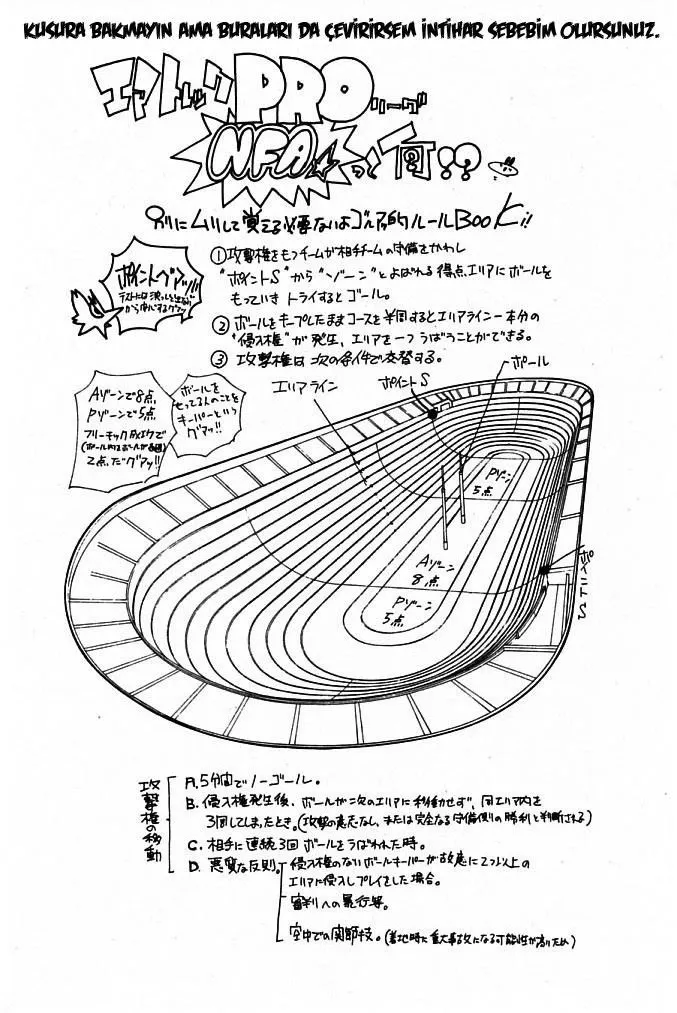 KUSURA BAKMAYIN AMA BURALARI DA ÇEVİRİRSEM İNTİHAR SEBEBİM OLURSUNUZ.
エアトレック PROリーグ
NFA☆って何!?
別にムリして覚える必要ないよ ルールBOOK!!
ポイントグァッ!!
①攻撃権をもつチームが相手チームの守備をかわし
"ポイントS"から"ゾーン"とよばれる得点エリアにボールを
もっていきトライするとゴール。
②ボールをキープしたままコースを半周するとエリアライン一本分の
"侵入権"が発生、エリアを一つうばうことができる。
③攻撃権は次の条件で交替する。
Aゾーンで8点
Pゾーンで5点
フリーキック成功で
2点だグァッ!!
ボールを
もってる人のことを
キーパーという
グァッ!!
エリアライン
ポイントS
ポール
Pゾーン
5点
Aゾーン
8点
Pゾーン
5点
ポイント
攻撃権の移動
A. 5分間でノーゴール。
B. 侵入権発生後、ボールが次のエリアに移動せず、同エリア内を
3回してしまったとき。(攻撃の意志なし、または完全なる守備側の勝利と判断される)
C. 相手に連続3回ボールをうばわれた時。
D. 悪質な反則。
侵入権のないボールキーパーが故意に2つ以上の
エリアに侵入しプレイをした場合。
審判への暴行等。
空中での関節技。(着地時に重大事故になる可能性が高いため)